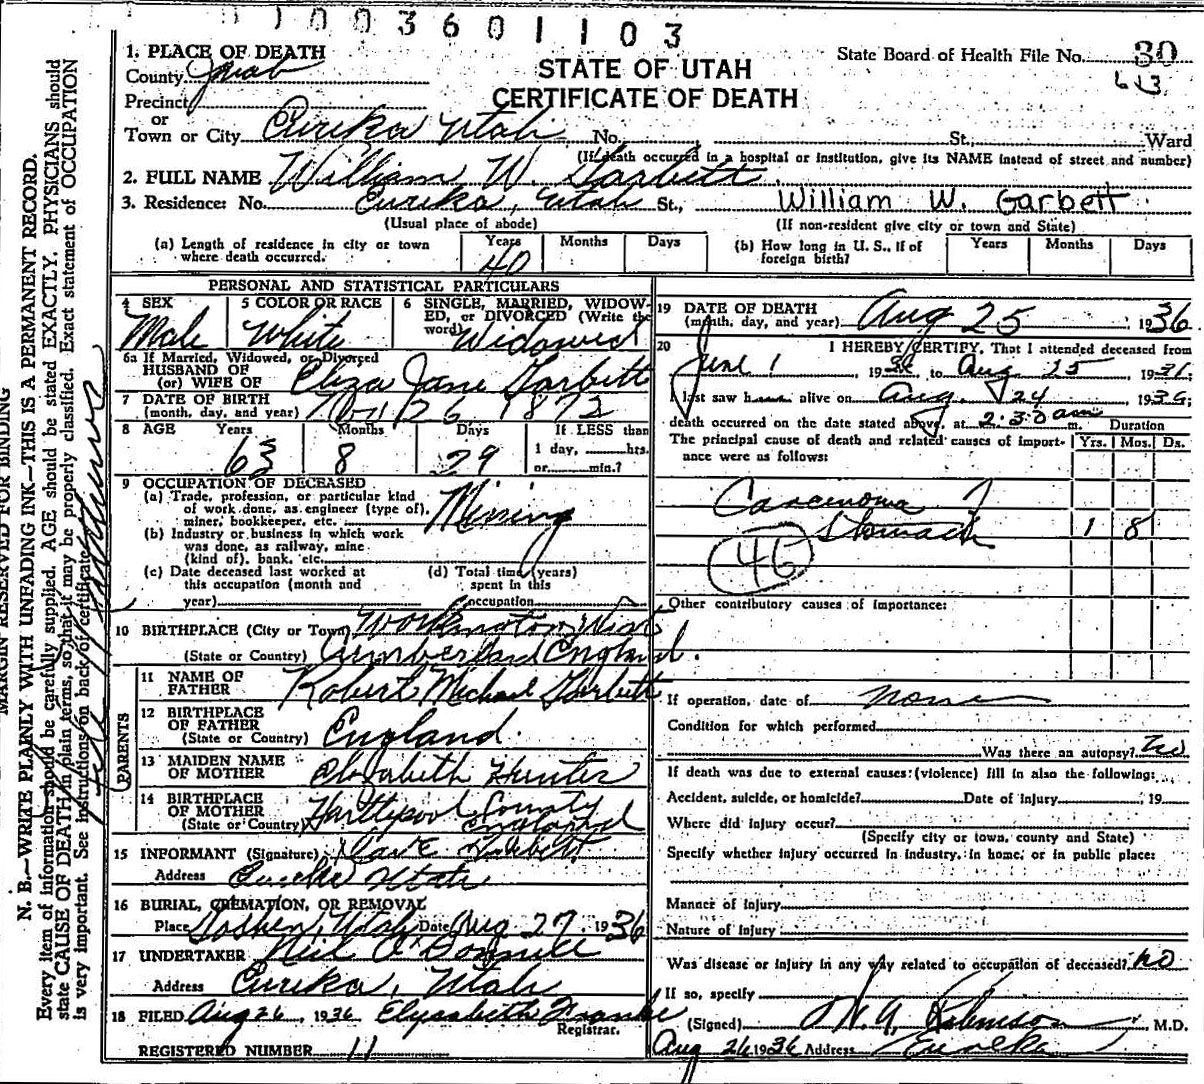 1003601103
1. PLACE OF DEATH
County Juab
State Board of Health File No. 30
613
STATE OF UTAH
CERTIFICATE OF DEATH
Precinct
or
Town or City Eureka Utah No. St., Ward
(If death occurred in a hospital or institution, give its NAME instead of street and number)
2. FULL NAME William W. Garbett
3. Residence: No. Eureka, Utah St., William W. Garbett
(Usual place of abode) (If non-resident give city or town and State)
(a) Length of residence in city or town where death occurred. Years 40 Months Days
(b) How long in U. S., if of foreign birth? Years Months Days
PERSONAL AND STATISTICAL PARTICULARS
4 SEX Male
5 COLOR OR RACE White
6 SINGLE, MARRIED, WIDOWED, or DIVORCED (Write the word) Widowed
6a If Married, Widowed, or Divorced
HUSBAND OF
(or) WIFE OF Eliza Jane Garbett
7 DATE OF BIRTH
(month, day, and year) Nov 26 1872
8 AGE Years 63 Months 8 Days 29 If LESS than 1 day, hrs. or min.?
9 OCCUPATION OF DECEASED
(a) Trade, profession, or particular kind
of work done, as engineer (type of),
miner, bookkeeper, etc. Mining
(b) Industry or business in which work
was done, as railway, mine
(kind of), bank, etc.
(c) Date deceased last worked at
this occupation (month and
year)
(d) Total time (years)
spent in this
occupation
10 BIRTHPLACE (City or Town) Workington West
(State or Country) Cumberland England.
PARENTS
11 NAME OF
FATHER Robert Michael Garbett
12 BIRTHPLACE
OF FATHER
(State or Country) England.
13 MAIDEN NAME
OF MOTHER Elizabeth Hunter
14 BIRTHPLACE
OF MOTHER
(State or Country) Harttepool County England
15 INFORMANT (Signature) Garbett
Address Eureka Utah
16 BURIAL, CREMATION, OR REMOVAL
Place Goshen, Utah Date Aug 27, 1936
17 UNDERTAKER Neil O'Donnell
Address Eureka, Utah
18 FILED Aug 26, 1936 Elysabeth Franke
Registrar.
REGISTERED NUMBER 11
19 DATE OF DEATH
(month, day, and year) Aug 25, 1936
20 I HEREBY CERTIFY, That I attended deceased from
June 1 1936 to Aug 25 1936;
I last saw h alive on Aug. 24 1936;
death occurred on the date stated above, at 2:30 am m.
The principal cause of death and related causes of importance were as follows:
Duration
Yrs. Mos. Ds.
Carcinoma
Stomach 1 8
46
Other contributory causes of importance:
If operation, date of none
Condition for which performed
Was there an autopsy? no
If death was due to external causes (violence) fill in also the following:
Accident, suicide, or homicide? Date of injury , 19
Where did injury occur?
(Specify city or town, county and State)
Specify whether injury occurred in industry, in home, or in public place:
Manner of injury
Nature of injury
Was disease or injury in any way related to occupation of deceased? no
If so, specify
(Signed) Robinson, M.D.
Aug 26 1936 Address Eureka
MARGIN RESERVED FOR BINDING
N. B.—WRITE PLAINLY WITH UNFADING INK—THIS IS A PERMANENT RECORD.
Every item of information should be carefully supplied. AGE should be stated EXACTLY. PHYSICIANS should
state CAUSE OF DEATH in plain terms, so that it may be properly classified. Exact statement of OCCUPATION
is very important. See instructions on back of certificate.